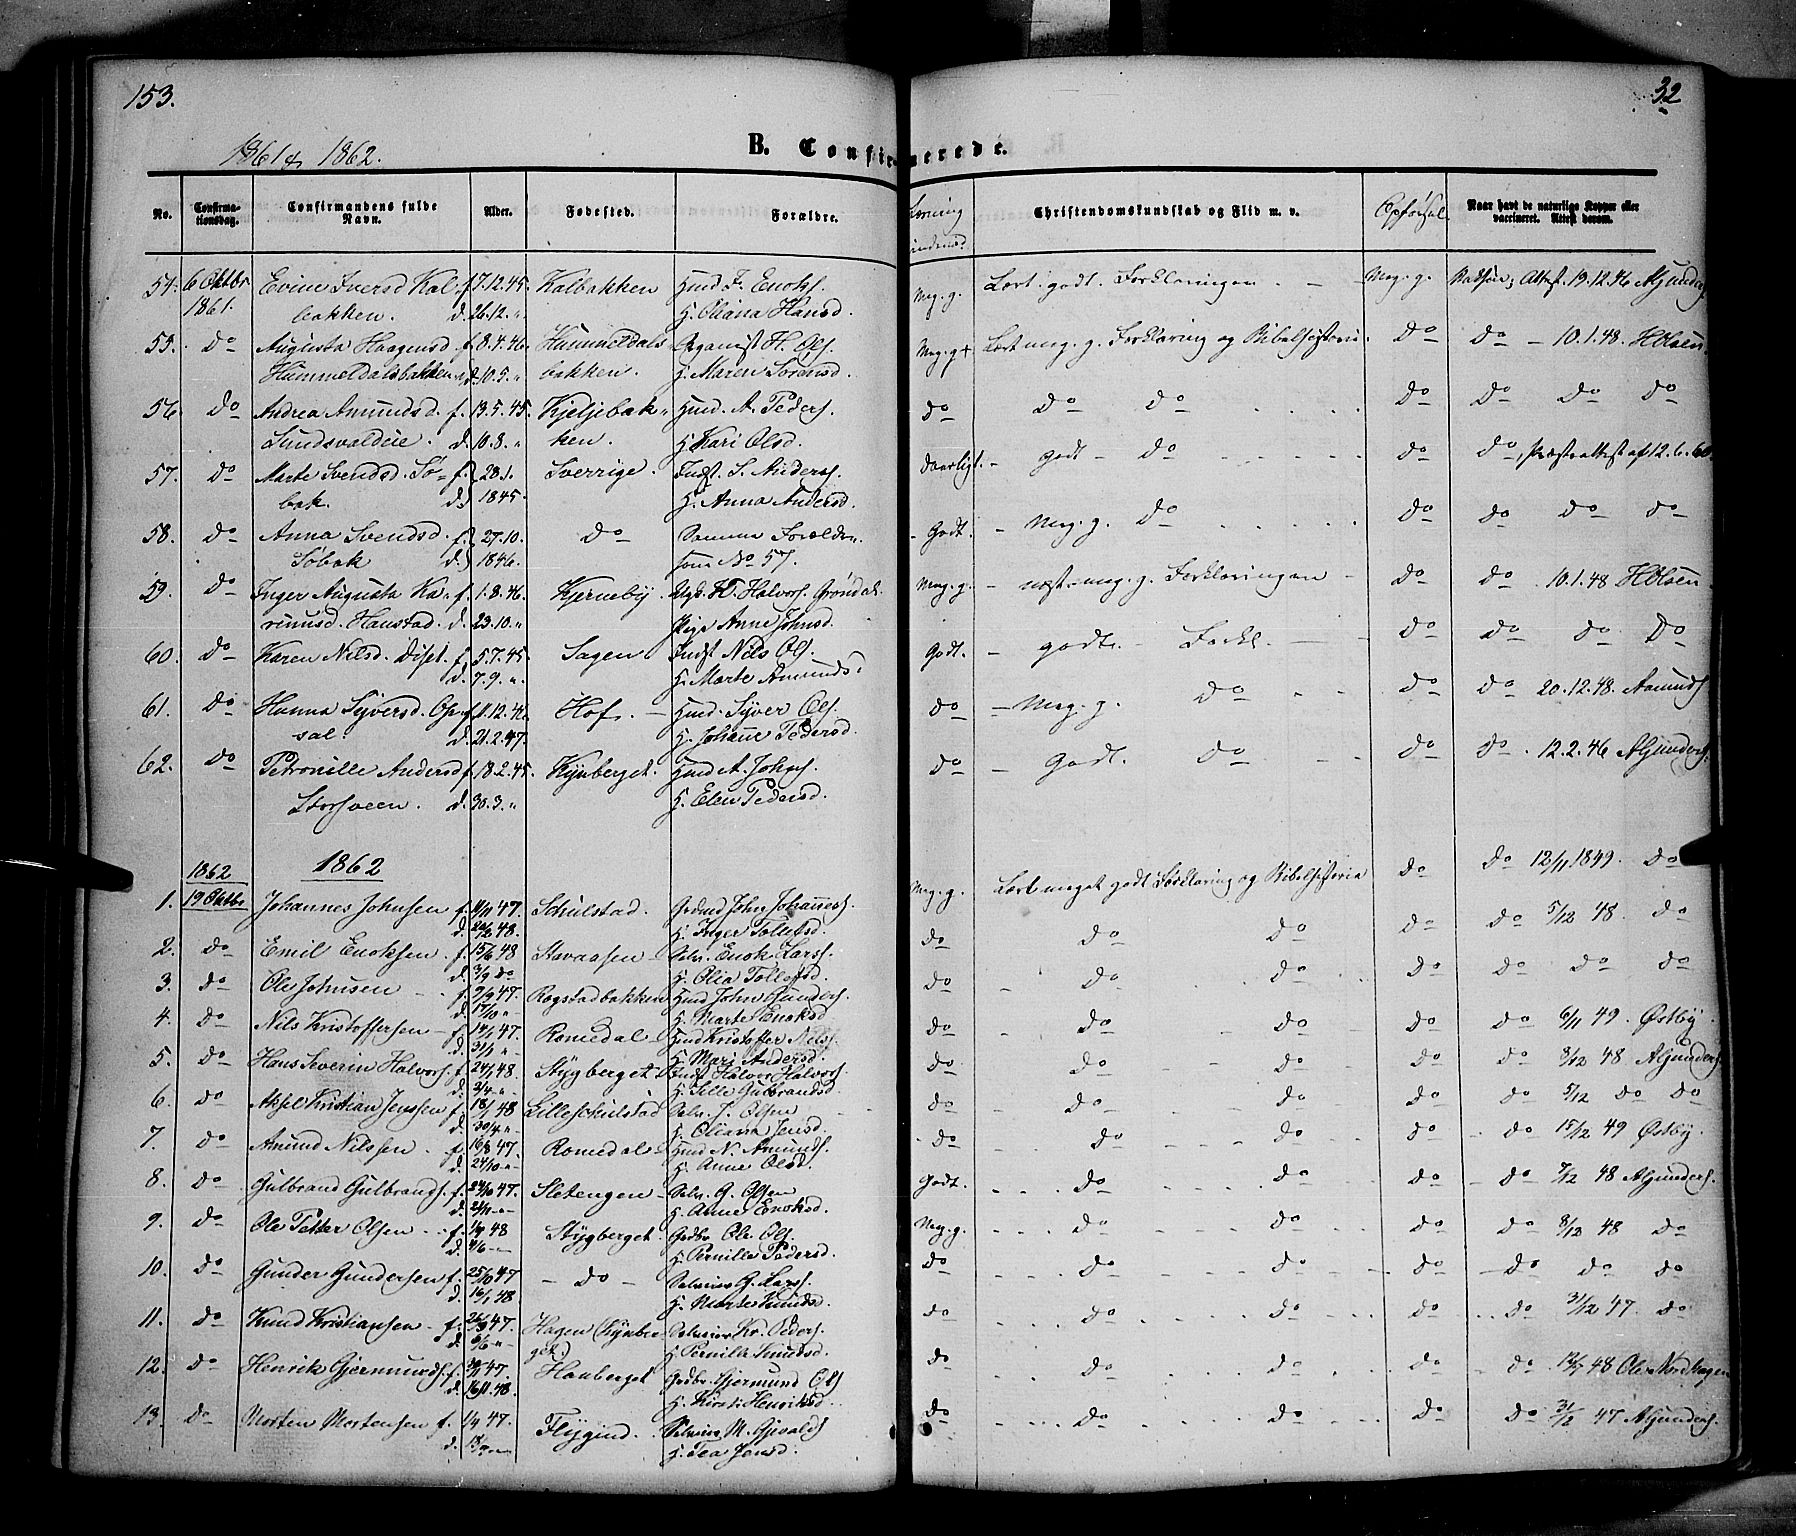 153.
32
1861 & 1862.
B. Confirmerede.
No.
Confirmationsdag.
Confirmandens fulde Navn.
Alder.
Fødested.
Forældre.
Læsning
Christendomskundskab og Flid m. v.
Opførsel.
Naar havt de naturlige Kopper eller vaccineret. Attest derom.
54. 6 Oktbr Evine Iversd Kal- f. 7.12.45. Kalbakken Huusm. I. Enoks. Meg. g. Lært godt Forklaringen Meg. g. Attest 19.12.46 AGunders
1861. bakken. d. 26.12. " H. Oliana Hansd.
55. do Augusta Haagensd f. 8.4.46. Hummeldals Organist H. Ols. Meg. g+ Lært meg. g. Forklaring og Bibelhistorie do do 10.1.48. HOlsen
Hummeldalsbakken d. 10.5. " bakken. H. Maren Sørensd.
56. do Andrea Amundsd. f. 13.5.45. Kjeljebak- Huusm. A. Peders. do do do do do do do
Lundsvaldeie. d. 10.8. " ken. H. Kari Olsd.
57. do Marte Svendsd. Sø- f. 28.1. Sverrige. Indst S. Anders. daarligt godt do do do, Præsteattest af 12.6.60
bak. d. 1845. H. Anna Andersd.
58. do Anna Svendsd. f. 27.10. do Samme Forældre Godt. Meg. g. do do do do do
Søbak d. 1846. som No 57.
59. do Inger Augusta Ka- f. 1.8.46. Kjerneby. Halvors. Grøndal. Meg. g. næst meg. g. Forklaringen do do 10.1.48 HOlsen
rinusd. Haustad. d. 23.10. " Pige Anne Johnsd.
60. do Karen Nilsd. Diset. f. 5.7.45. Sagen Indst Nils Ols. Godt. godt. Forkl. do do do do
d. 7.9. " H. Marte Amundsd.
61. do Hanna Syversd. Op- f. 11.12.46. Hof. Huusm. Syver Ols. do Meg. g. do do do 20.12.48. Amunds
sal. d. 21.2.47. H. Johanne Pedersd.
62. do Petronille Andersd f. 18.2.45. Kynberget. Huusm A. Johns. do Godt. do do do 12.2.46 AGunders.
Storsveen. d. 30.3. " H. Elen Pedersd.
1862
1862
1. 19 Oktbr Johannes Johnsen f. 4/11 47. Schulstad. Grdmd John Johanness. Meg. g. Lært meget godt Forklaring og Bibelhistorie do do 12/11 1849. do
d. 26/12 48. H. Inger Tollefsd.
2. do Emil Enoksen. f. 15/6 48 Stavaasen Selv. Enok Larss. do do do do do 5/12 48. do
d. 3/9 do H. Olia Tollefsd.
3. do Ole Johnsen f. 9/9 47. Rogstadbakken Huusm John Gunders. do do do do do do do
d. 17/10 " H. Marte Enoksd
4. do Nils Kristoffersen f. 14/1 47. Romedal Huusm Kristoffer Nils. do do do do do 6/11 49. Østby.
d. 31/1 " H. Mari Andersd.
5. do Hans Severin Halvors. f. 24/1 48. Stygberget Indst Halvor Halvors. do do do do do 8/12 48 AGunders.
d. 3/4 " H. Sille Gulbrandsd.
6. do Aksel Kristian Jenssen f. 18/1 48 Lilleschulstad Selv. J. Olsen do do do do do 5/12 do do
d. 30/4 " H. Oliana Jensd.
7. do Amund Nilssen f. 16/8 47. Romedal Huusm N. Amunds. do do do do do 15/12 49 Østby.
d. 24/10 " H. Anne Olsd.
8. do Gulbrand Gulbrands. f. 24/10 47. Sletengen Selv. G. Olsen Godt. do do do do 7/12 48 AGunders.
d. 21/11 " H. Anne Enoksd.
9. do Ole Petter Olsen f. 1/4 48 Stygberget. Grdbr. Ole Ols. Meg. g. do do do do 8/12 48 do
d. 4/6 " H. Pernille Pedersd.
10. do Gunder Gundersen f. 25/10 47 do Selveier G. Larss. do do do do do do do
d. 16/1 48 H. Marte Knudsd.
11. do Knud Kristiansen f. 26/3 47. Hagen (Kynber- Selveier Kr. Peders. do do do do do 31/12 47. do
d. 6/6 " get.) H. Pernille Knudsd.
12. do Henrik Gjermunds. f. 30/11 47. Hauberget Grdbr. Gjermund Ols do do do do do 12/7 48 Ole Nordhagen
d. 16/1 48. H. Kirsti Henriksd.
13. do Morten Mortensen f. 1/4 47. Flygind. Selveier M. Gjevalds do do do do do 31/12 47 AGunders.
d. H. Tea Jensd.